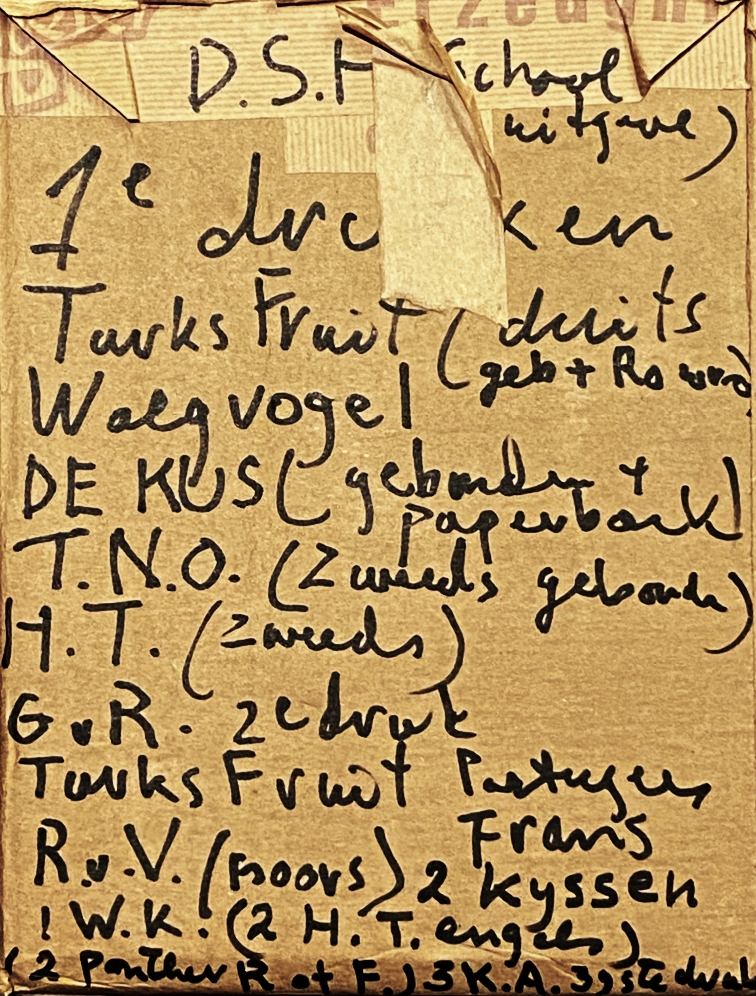 Erzeugni
D.S.H School
uitgave)
1e drukken
Turks Fruit (duits
(geb + Ro
Walgvogel
DE KUS (gebonden +
paperback)
T.N.O. (Zweeds gebonden)
H.T. (Zweeds)
G.v.R. 2e druk
Turks Fruit Portugees
Frans
R.v.V. (Noors) 2 Kyssen
! W.K. (2 H.T. engels)
(2 Panther R of F.) 3 K.A. 39ste druk